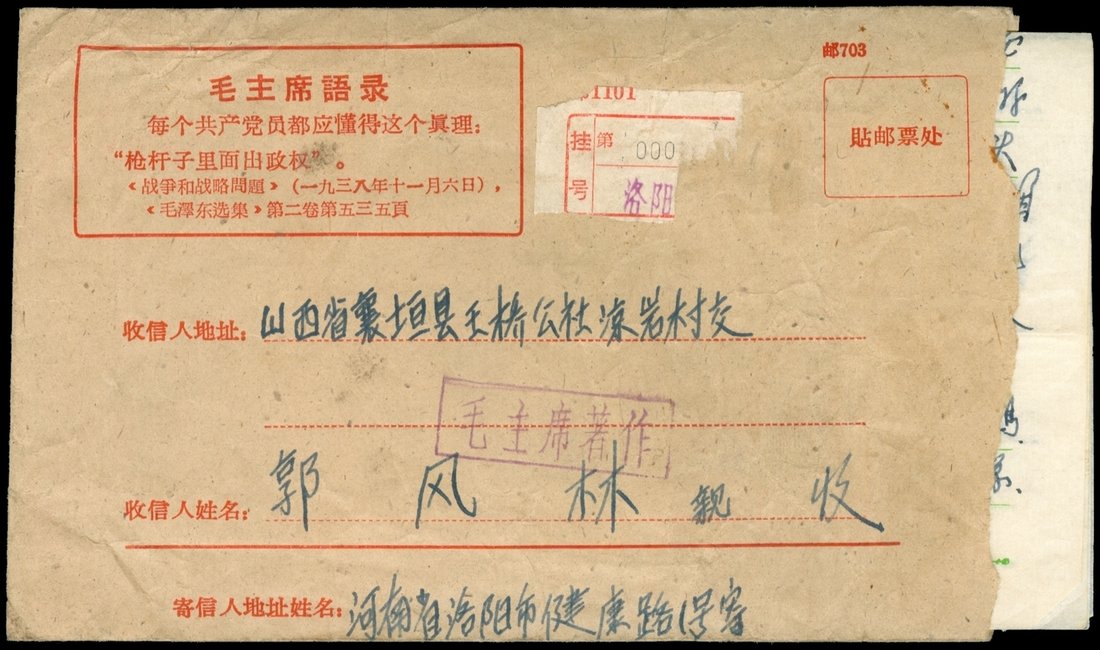 毛主席語录
每个共产党员都应懂得这个眞理：
“枪杆子里面出政权”。
《战爭和战略問題》（一九三八年十一月六日），
《毛澤东选集》第二卷第五三五頁
邮703
1101
挂号
第
000
洛阳
貼邮票处
收信人地址：山西省襄垣县王桥公社涑岩村交
毛主席著作
收信人姓名：郭风林親收
寄信人地址姓名：河南省洛阳市健康路1号寄